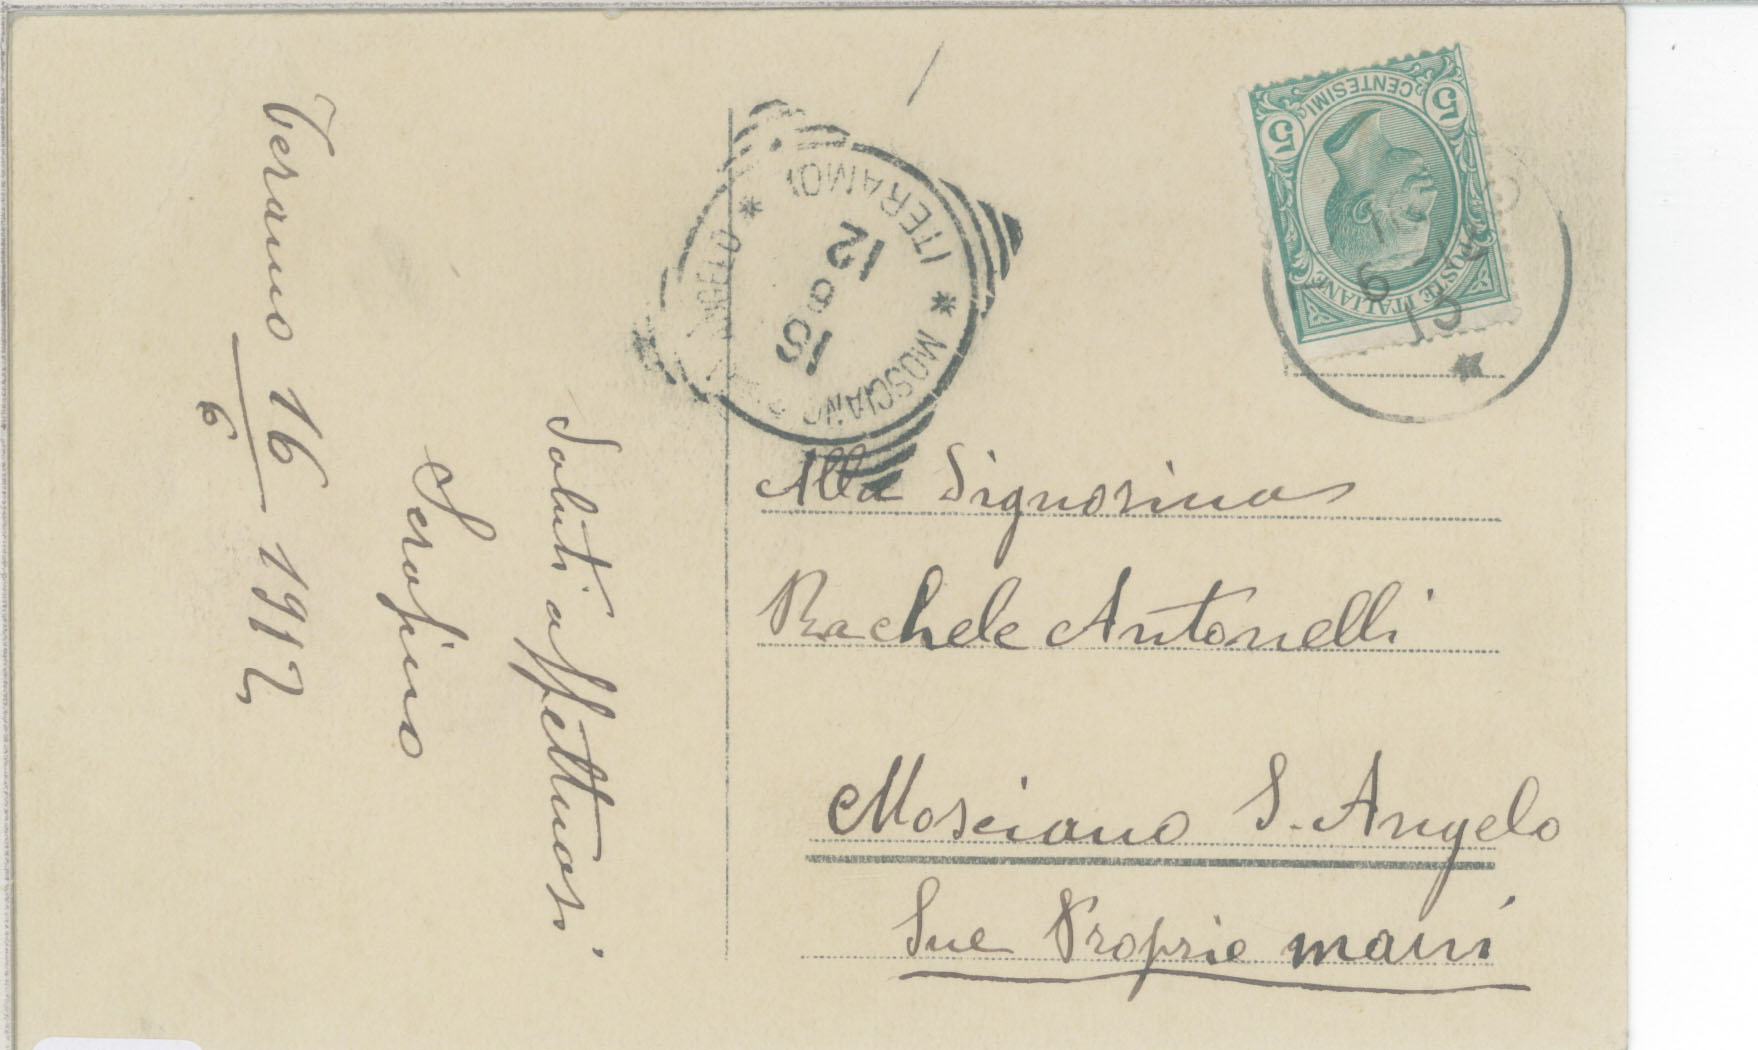 Teramo 16/6 1912
Saluti affettuosi
Serafino
Alla Signorina
Rachele Antonelli
Mosciano S. Angelo
Sue Proprie mani
5 CENTESIMI 5
POSTE ITALIANE
6
15
* MOSCIANO
(TERAMO)
15 6 12